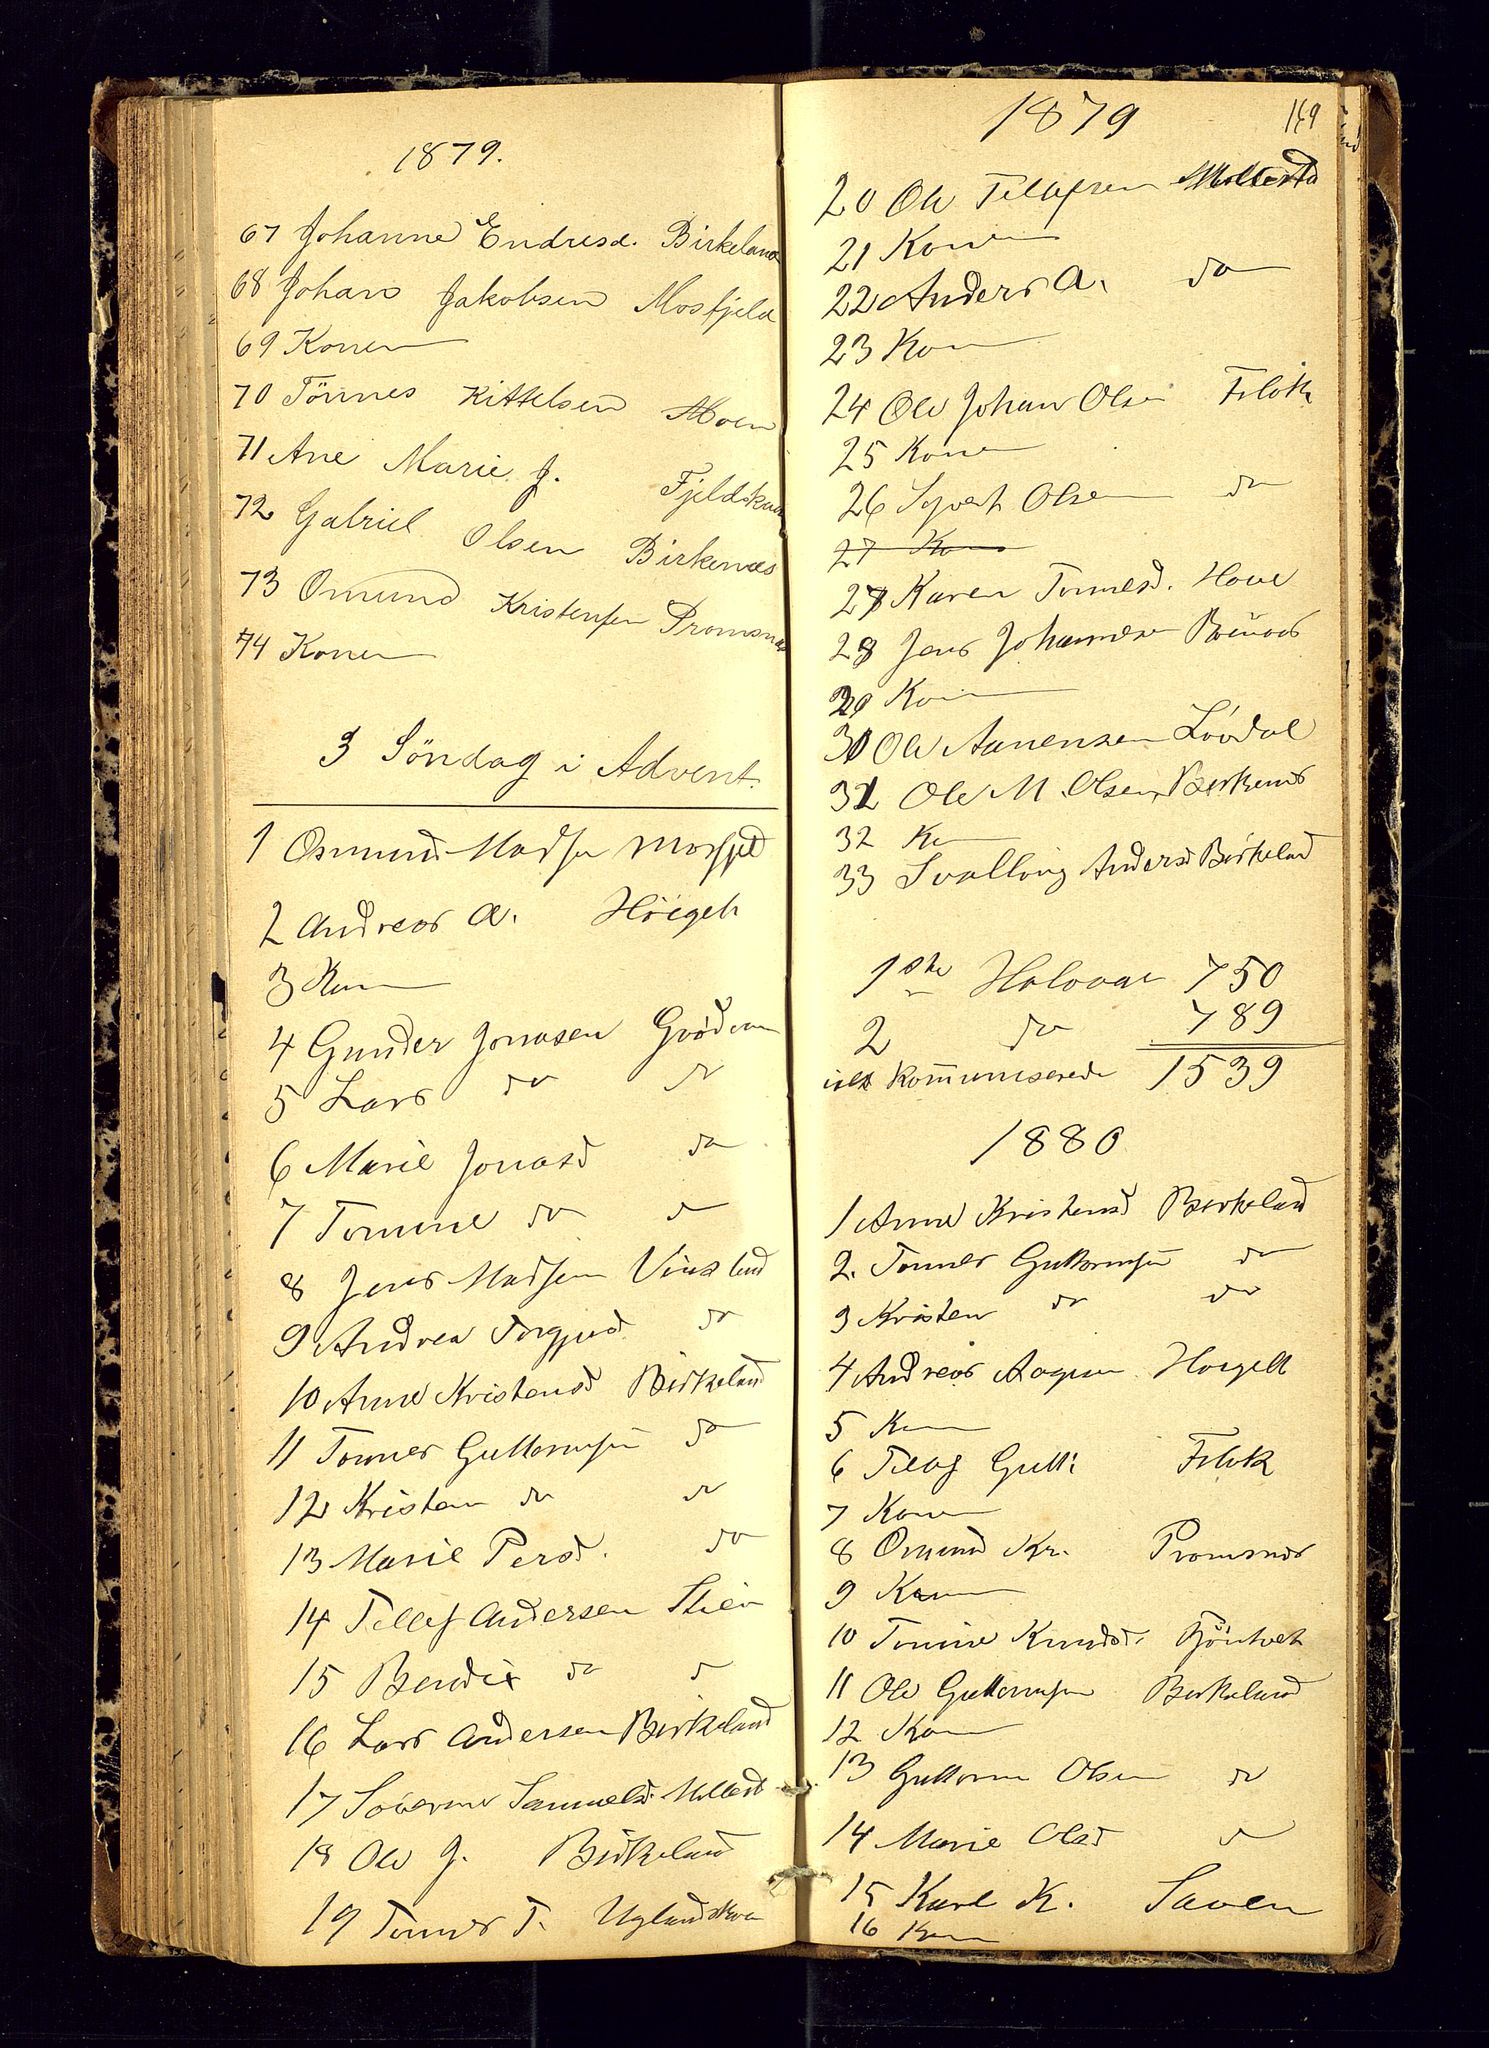 1879.
67 Johanne Endresd. Birkeland
68 Johans Jakobsen Mosfjeld
69 Konen
70 Tönnes Kittelsen Moen
71 Ane Marie J. Fjeldskaar
72 Gabriel Olsen Birkenæs
73 Omund Kristensen Promsnæs
74 Konen
3 Söndag i Advent.
1 Osmund Madsen Mosfjeld
2 Andreas A. Höigelt
3 Kon
4 Gunder Jonasen
5 Lars do do
6 Marie Jonasd do
7 Tomine do do
8 Jens Madsen
9 Andrea Torgjusd do
10 Anne Kristensd Birkeland
11 Tønnes Guttormsen do
12 Kristen do do
13 Marie Persd. do
14 Tellef Andersen Stien
15 Bendix do do
16 Lars Andersen Birkeland
17 Samuelsd.
18 Ole J. Birkeland
19 Tønnes T. Uglandskaar
1879
169
20 Ole Tellefsen
21 Konen
22 Anders A. do
23 Kon
24 Ole Johan Olsen
25 Konen
26 Syvert Olsen do
27 Kone
27 Karen Tønnesd. Hove
28 Jens Johannesen
29 Kon
30 Ole Aanensen
31 Ole M. Olsen Birkenæs
32 Kon
33 Andersd Birkeland
1ste Halvaar 750
2 do 789
ialt kommuniserede 1539
1880
1 Anne Kristensd Birkeland
2. Tønnes Guttormsen do
3 Kristen do do
4 Andreas Aagesen Hoigelt
5 Kon
6 Tellef Gutt:
7 Konen
8 Omund Kr. Promsnæs
9 Konen
10 Tomine Knudsd.
11 Ole Guttormsen Birkeland
12 Kon
13 Guttorm Olsen do
14 Marie Olsd do
15 Karl K. Saven
16 Kon